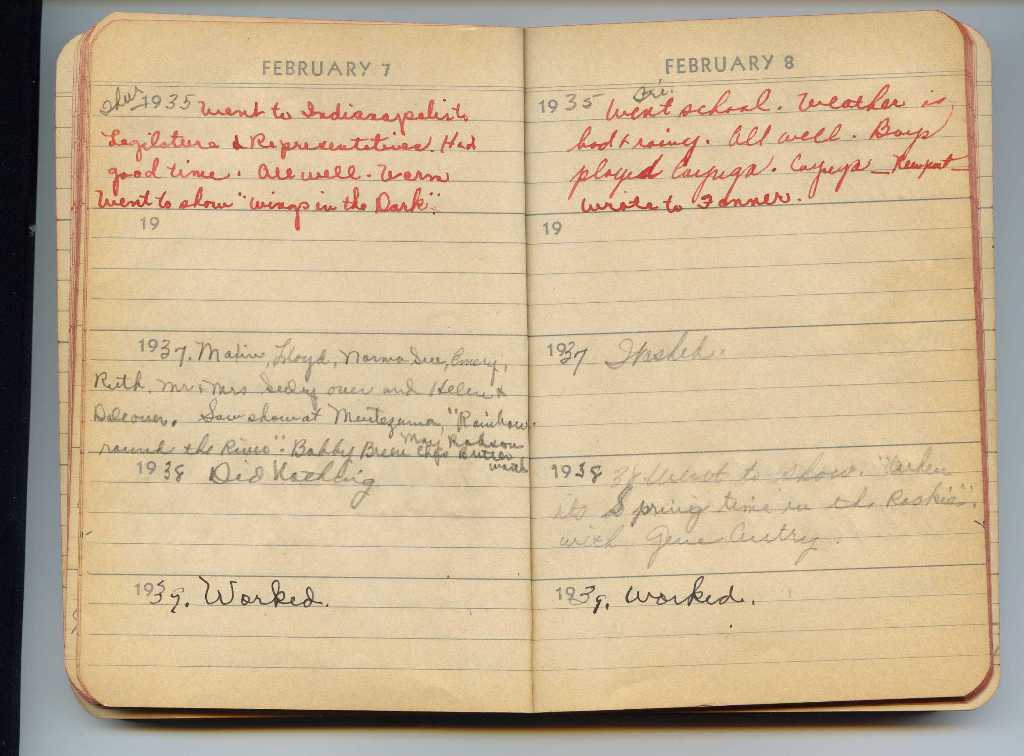 FEBRUARY 7
Thur 1935 Went to Indianapolis to
Legislature & Representatives. Had
good time. All well. Warm
Went to show "Wings in the Dark".
19
1937. Maxine, Lloyd, Norma Sue, Emery,
Ruth, Mr & Mrs over and Helen &
Dale over. Saw show at Montezuma, "Rainbow
round the River" - Bobby Breen May Robson
Chas Butter
worth
1938 Did Nothing
1939. Worked.
FEBRUARY 8
Fri.
1935 Went school. Weather is
bad & rainy. All well. Boys
played Cayuga. Cayuga - Newport -
Wrote to
19
1937
1938 38 Went to show. "When
its Spring time in the Rockies".
with Gene Autry.
1939. Worked.